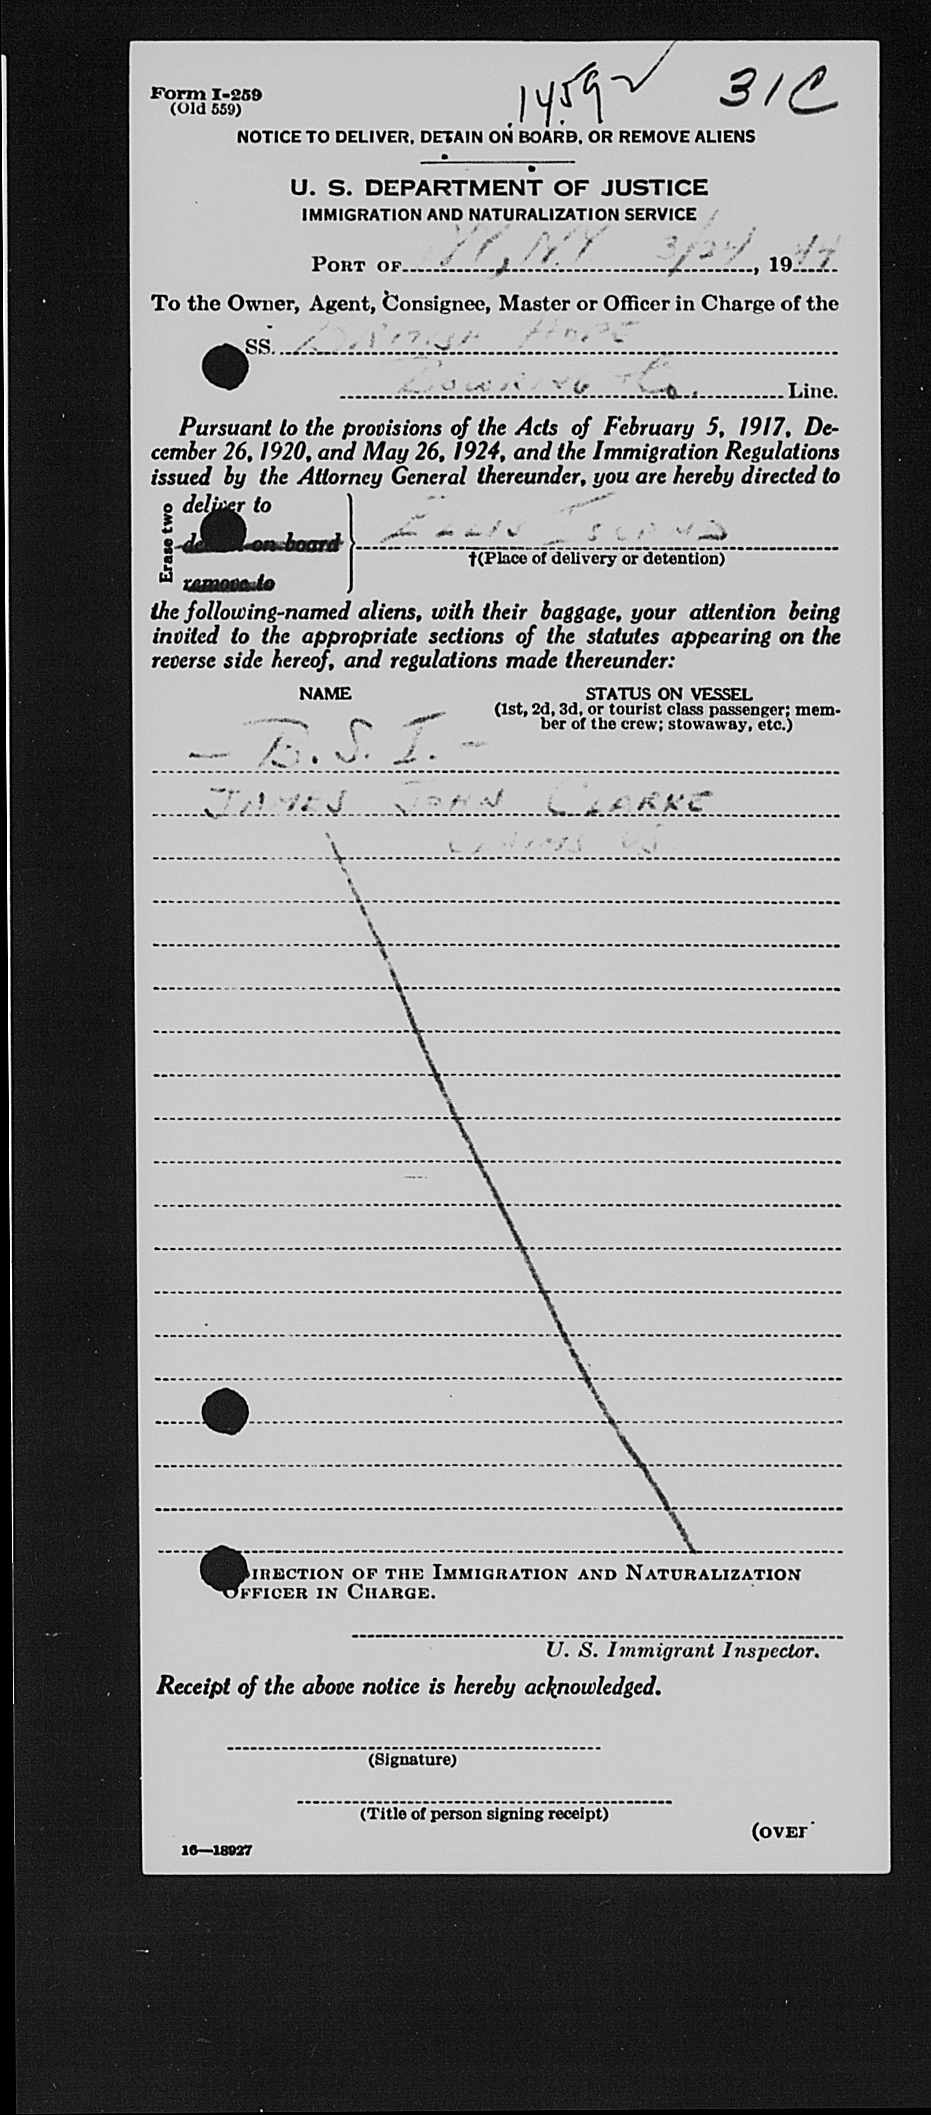 Form I-259
(Old 559)
1459 31C
NOTICE TO DELIVER, DETAIN ON BOARD, OR REMOVE ALIENS
U. S. DEPARTMENT OF JUSTICE
IMMIGRATION AND NATURALIZATION SERVICE
PORT OF N.Y. 3/24, 1944
To the Owner, Agent, Consignee, Master or Officer in Charge of the
SS. BRITISH HOPE
BOWRING & Co. Line.
Pursuant to the provisions of the Acts of February 5, 1917, De-
cember 26, 1920, and May 26, 1924, and the Immigration Regulations
issued by the Attorney General thereunder, you are hereby directed to
Erase two
deliver to
on board
remove to
ELLIS ISLAND
†(Place of delivery or detention)
the following-named aliens, with their baggage, your attention being
invited to the appropriate sections of the statutes appearing on the
reverse side hereof, and regulations made thereunder:
NAME STATUS ON VESSEL
(1st, 2d, 3d, or tourist class passenger; mem-
ber of the crew; stowaway, etc.)
- B.S.I. -
JAMES JOHN CLARKE
CLAIMS US
IRECTION OF THE IMMIGRATION AND NATURALIZATION
OFFICER IN CHARGE.
U. S. Immigrant Inspector.
Receipt of the above notice is hereby acknowledged.
(Signature)
(Title of person signing receipt)
(OVER
16—18927